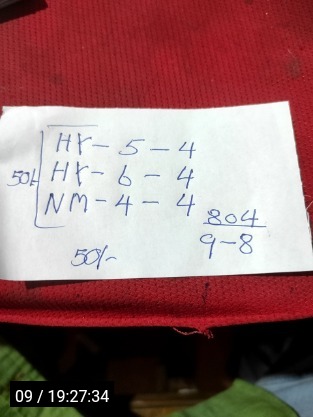 HY - 5 - 4
50/- HY - 6 - 4
NM - 4 - 4
804
9-8
50/-
09 / 19:27:34